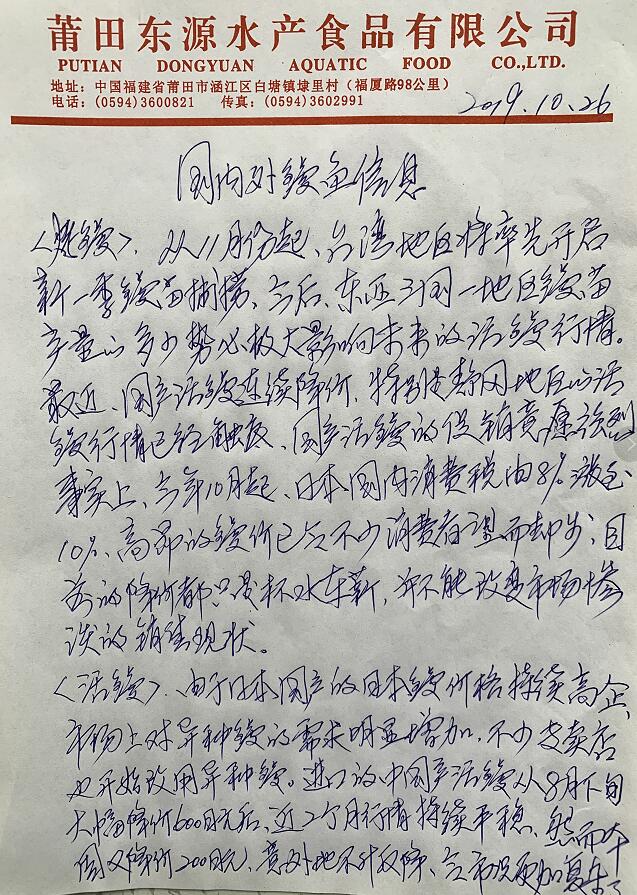 莆田东源水产食品有限公司
PUTIAN DONGYUAN AQUATIC FOOD CO.,LTD.
地址：中国福建省莆田市涵江区白塘镇埭里村（福厦路98公里）
电话：(0594)3600821 传真：(0594)3602991
2019.10.26
国内外鳗鱼信息
〈烤鳗〉、从11月份起、台湾地区将率先开启
新一季鳗苗捕捞、今后、东亚三国一地区鳗苗
产量的多少势必极大影响未来的活鳗行情。
最近、国产活鳗连续降价、特别是静冈地区的活
鳗行情已经触底、国产活鳗的促销意愿强烈
事实上、今年10月起、日本国内消费税由8%涨至
10%、高昂的鳗价已令不少消费者望而却步、目
前的降价都只是杯水车薪、并不能改变市场惨
淡的销售现状。
〈活鳗〉、由于日本国产的日本鳗价格持续高企、
市场上对异种鳗的需求明显增加、不少专卖店
也开始改用异种鳗。进口的中国产活鳗从8月下旬
大幅降价600日元后、近2个月行情持续平稳、然而本
周又降价200日元、意外地不升反降、令市况更加复杂